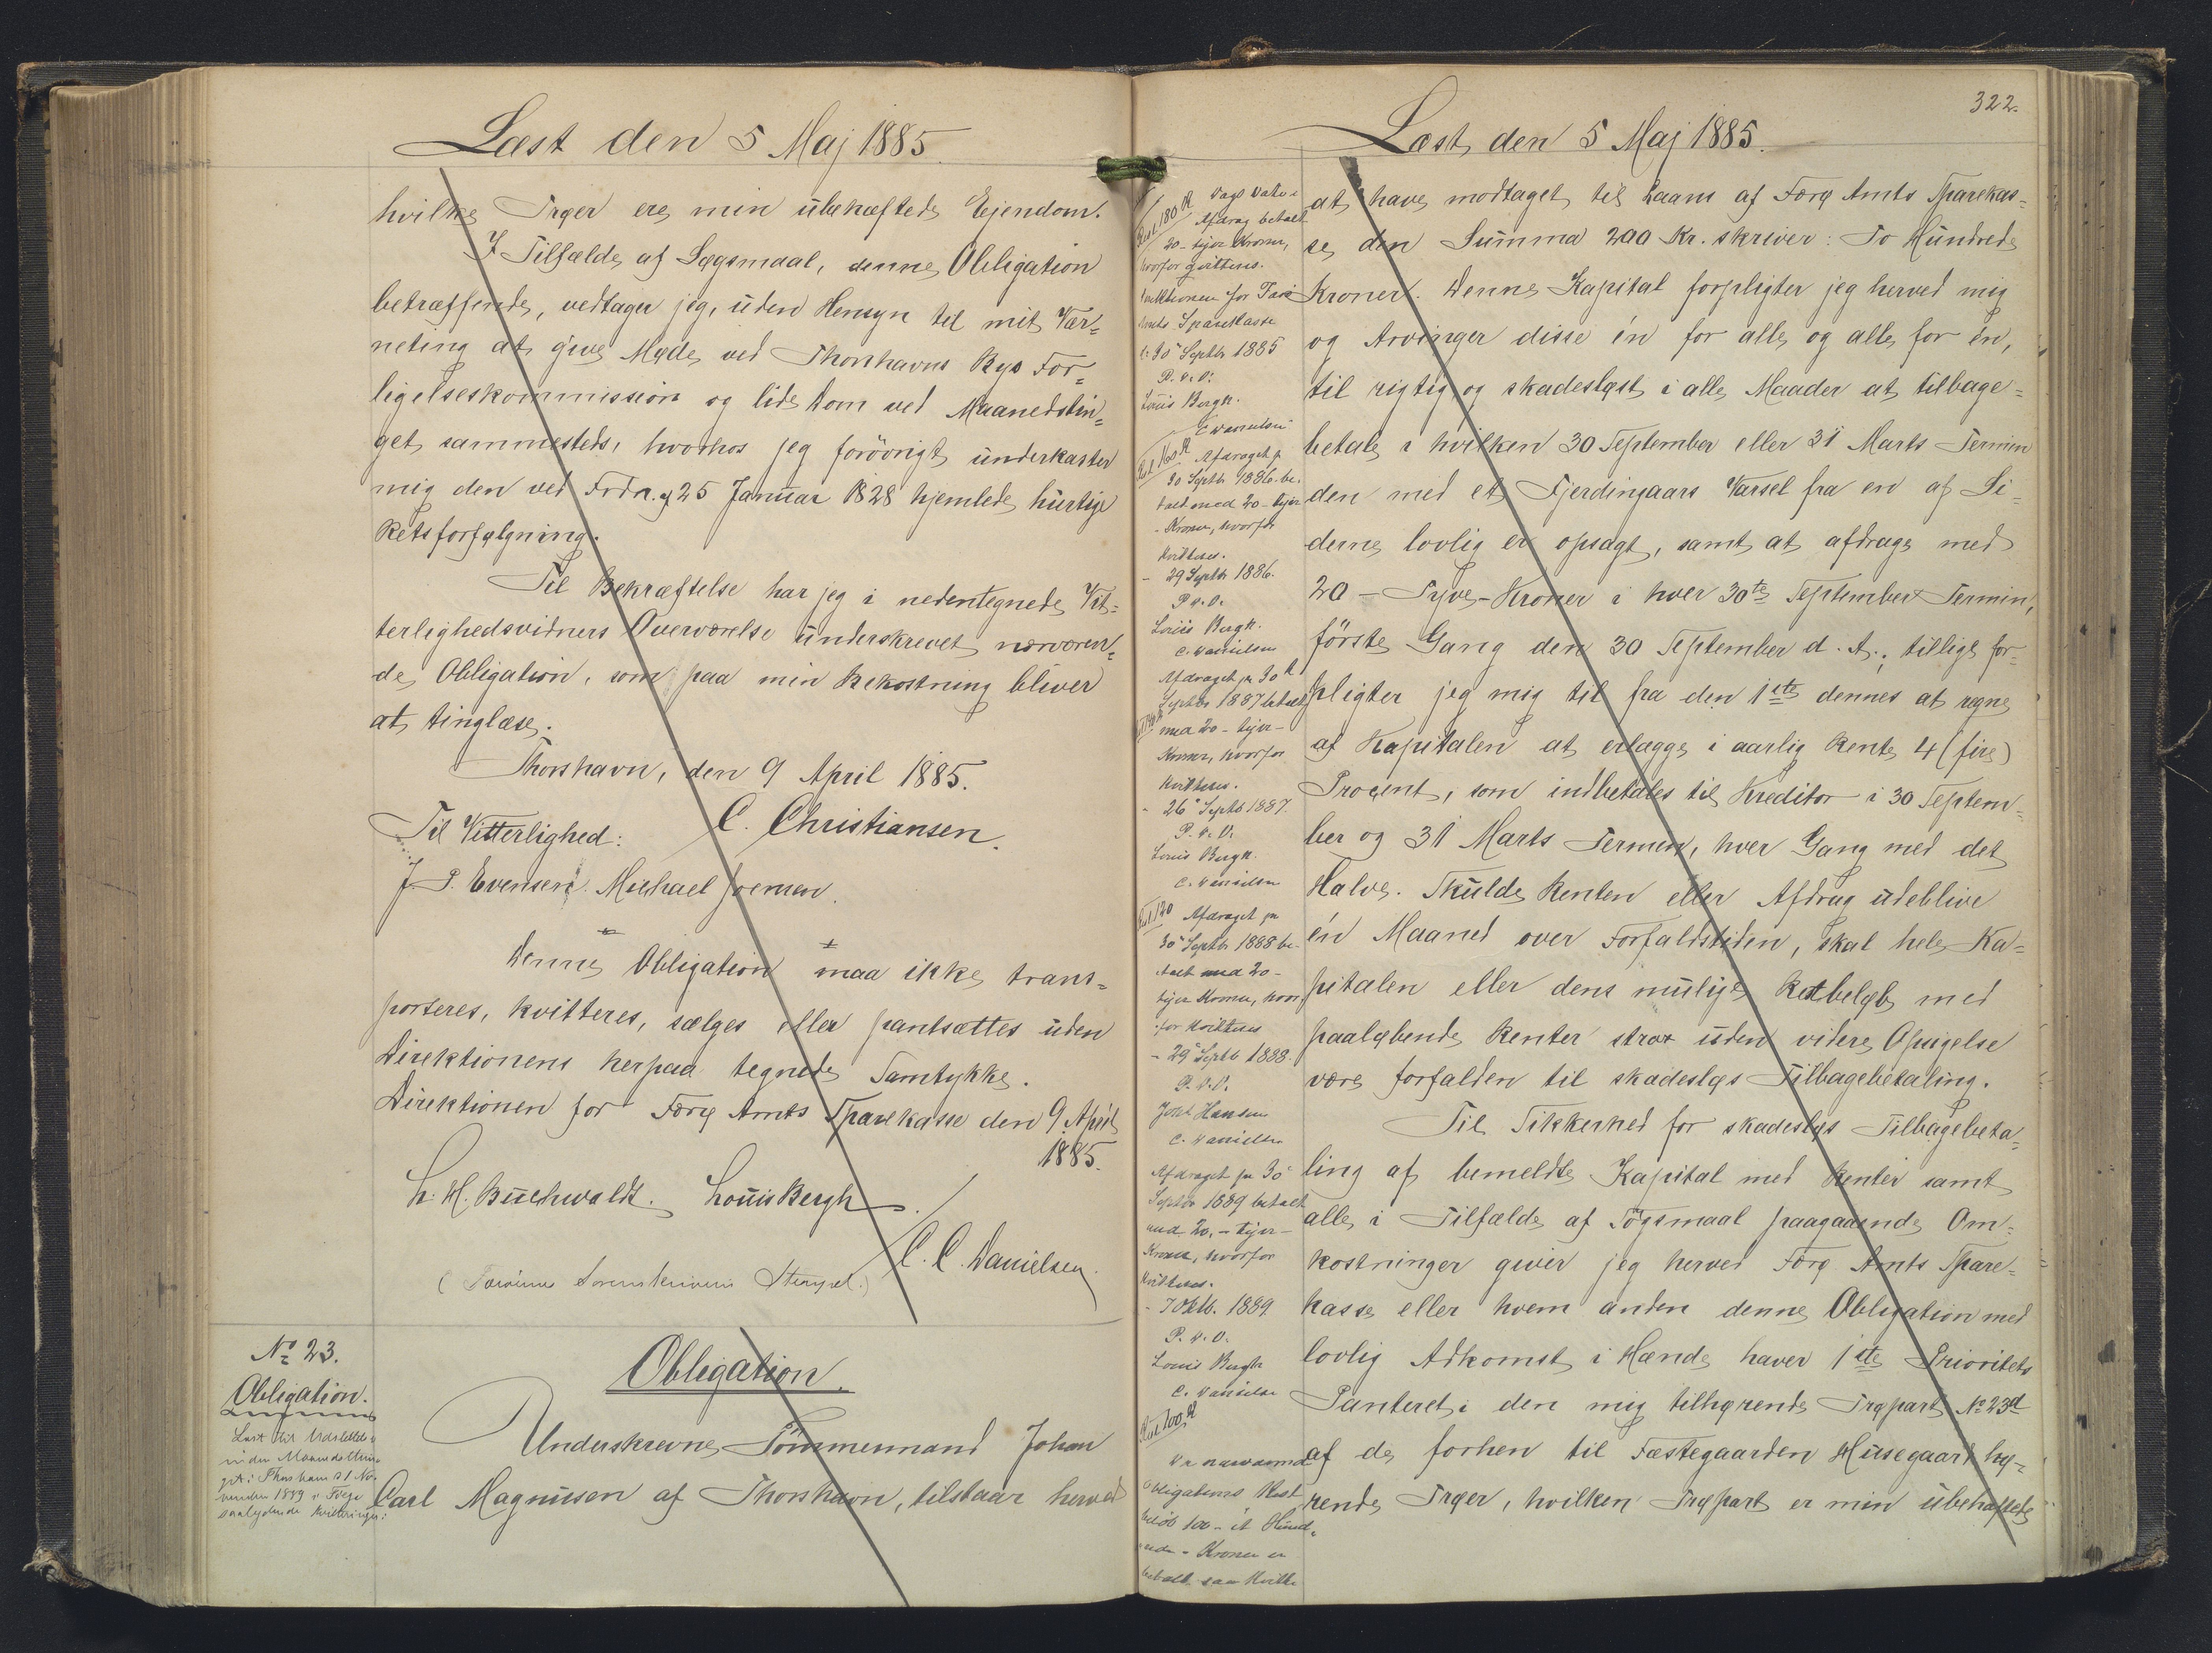 Læst den 5 Maj 1885.
hvilke Trøer ere min ubehæftede Ejendom.
I Tilfælde af Søgsmaal, denne Obligation
betræffende, vedtager jeg, uden Hensyn til mit Vær=
neting at give Møde ved Thorshavns Bys For=
ligelseskommission og lide Dom ved Maanedstin=
get sammesteds, hvorhos jeg forövrigt underkaster
mig den ved Frdn. af 25 Januar 1828 hjemlede hurtige
Retsforfølgning.
Til Bekræftelse har jeg i nedentegnede Vit=
terlighedsvidners Overværelse underskrevet nærværen=
de Obligation, som paa min Bekostning bliver
at tinglæse.
Thorshavn, den 9 April 1885.
Til Vitterlighed: C. Christiansen.
J. P. Evensen. Michael Joensen.
Denne Obligation maa ikke trans=
porteres, kvitteres, sælges eller pantsættes uden
Direktionens herpaa tegnede Samtykke.
Direktionen for Færø Amts Sparekasse den 9 April
1885.
L. H. Buchwaldt. Louis Bergh.
C. C. Danielsen.
(Færøernes Sorenskriveris Stempel.)
No 23.
Obligation.
Læst til Udslettelse
inden Maanedsthin-
get i Thorshavn d 1 No-
vember 1889 i Følge
saalydende Kvitteringer:
Obligation.
Underskrevne Tömmermand Johan
Carl Magnusen af Thorshavn, tilstaar herved
322.
Læst den 5 Maj 1885.
at have modtaget til Laans af Færø Amts Sparekas=
se den Summa 200 Kr. skriver: To Hundrede
Kroner. Denne Kapital forpligter jeg herved mig
og Arvinger disse én for alle og alle for én,
til rigtig og skadesløst i alle Maader at tilbage=
betale i hvilken 30 September eller 31 Marts Termin
den med et Fjerdingaars Varsel fra en af Si=
derne lovlig er opsagt, samt at afdrage med
20 - Tyve - Kroner i hver 30te September Termin,
förste Gang den 30 September d. A.; tillige for=
pligter jeg mig til fra den 1ste dennes at regne
af Kapitalen at erlægge i aarlig Rente 4 (fire)
Procent, som indbetales til Kreditor i 30 Septem=
ber og 31 Marts Termin, hver Gang med det
Halve. Skulde Renten eller Afdrag udeblive
én Maaned over Forfaldstiden, skal hele Ka=
pitalen eller dens mulige Restbeløb med
paaløbende Renter strax uden videre Opsigelse
være forfalden til skadesløs Tilbagebetaling.
Til Sikkerhed for skadesløs Tilbagebeta=
ling af bemeldte Kapital med Renter samt
alle i Tilfælde af Sögsmaal paagaaende Om=
kostninger giver jeg herved Færø Amts Spare=
kasse eller hvem anden denne Obligation med
lovlig Adkomst i Hænde haver 1ste Prioritets
Panteret i den mig tilhørende Trøpart No 23d
af de forhen til Fæstegaarden Husegaard hø=
rende Trøer, hvilken Trøpart er min ubehæftede
Rest 180 Kr
Dags Dato i
Afdrag betalt
20 - tyve Kroner,
hvorfor qvitteres.
Direktionen for Færø
Amts Sparekasse
d. 30 Septbr 1885
P. D. V.
Louis Bergh.
C. Danielsen.
Rest 160 Kr
Afdraget pr
30 Septbr 1886 be-
talt med 20 - tyve
- Kroner, hvorfor
kvitteres.
- 29 Septbr 1886.
P. D. V.
Louis Bergh.
C. Danielsen
Afdraget pr 30
Septbr 1887 betalt
med 20 - tyve -
Kroner, hvorfor
kvitteres.
- 26 Septb 1887.
P. D. V.
Louis Bergh.
C. Danielsen
Rest 120
Afdraget pr
30 Septbr 1888 be-
talt med 20 -
tyve Kroner, hvor-
for kvitteres
- 29 Septb 1888.
P. D. V.
Hansen
C. Danielsen
Afdraget pr 30
Septbr 1889 betalt
med 20, - tyve -
Kroner, hvorfor
kvitteres.
- 7 Oktb. 1889
P. D. V.
Louis Bergh
C. Danielsen
Rest 100 Kr
Da nærværende
Obligations Rest
beløb 100 - et Hund-
rede - Kroner er
betalt saa kvitte-